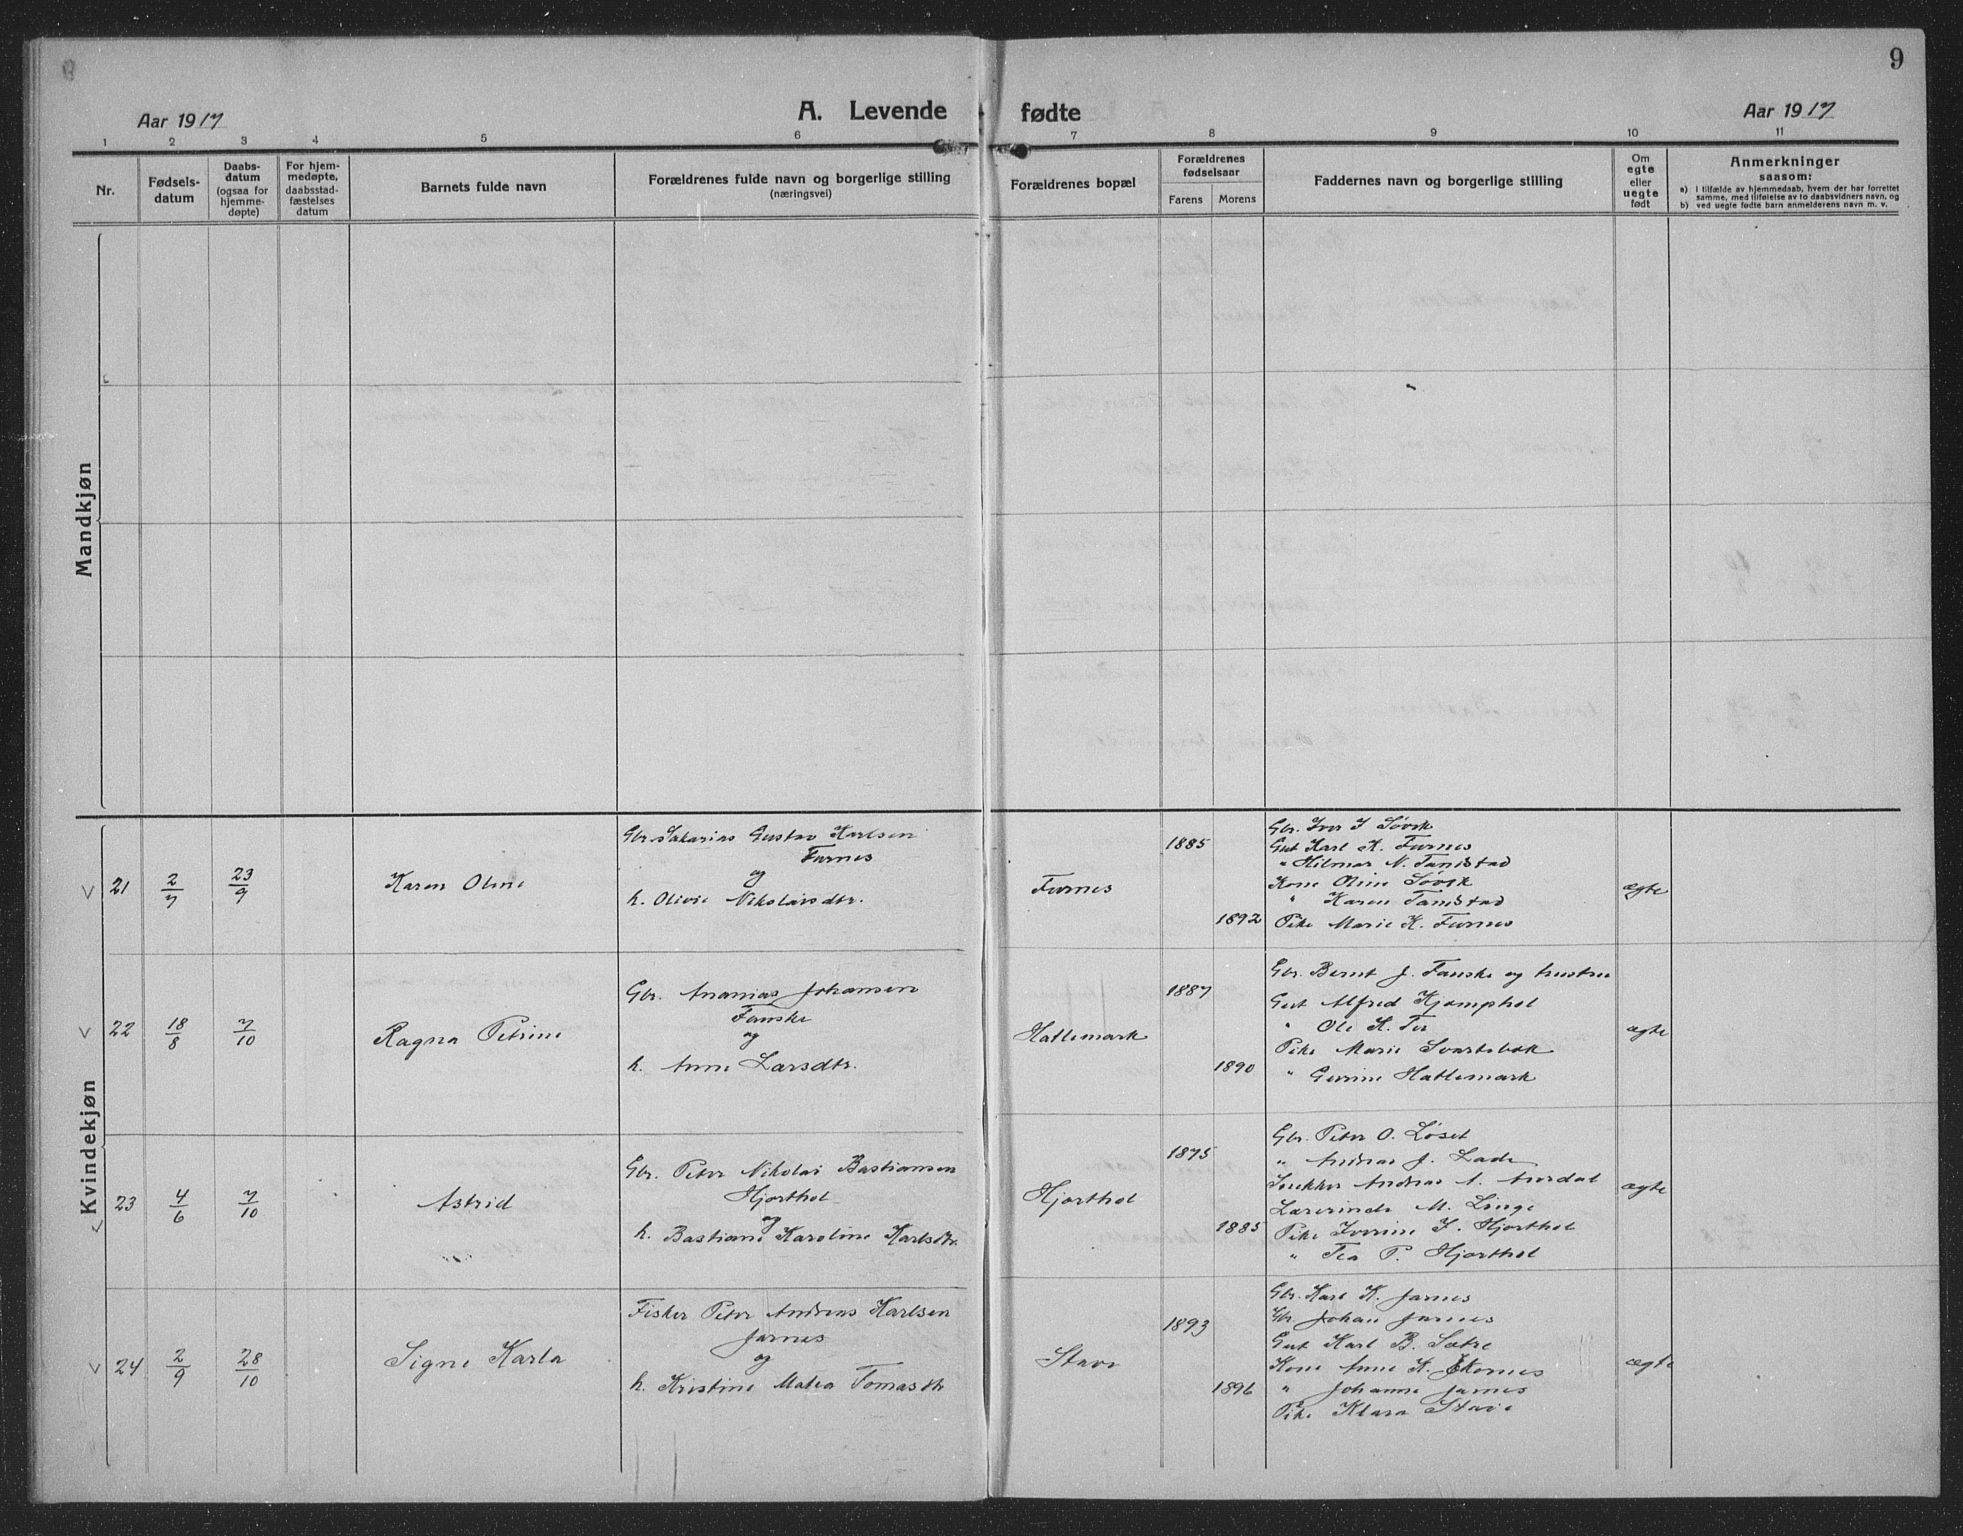 9
A. Levende fødte
Aar 1917
Aar 1917
1 2 3 4 5 6 7 8 9 10 11
Nr.
Fødsels-
datum
Daabs-
datum
(ogsaa for
hjemme-
døpte)
For hjem-
medøpte,
daabsstad-
fæstelses
datum
Barnets fulde navn
Forældrenes fulde navn og borgerlige stilling
(næringsvei)
Forældrenes bopæl
Forældrenes
fødselsaar
Farens Morens
Faddernes navn og borgerlige stilling
Om
egte
eller
uegte
født
Anmerkninger
saasom:
a) I tilfælde av hjemmedaab, hvem der har forrettet
samme, med tilføielse av to daabsvidners navn, og
b) ved uegte fødte barn anmelderens navn m. v.
Mandkjøn
Kvindekjøn
21 2/7 23/9
Karen Oline
Gbr. Sakarias Gustav Karlsen
Furnes
og
h. Olivie Nikolaisdtr.
Furnes
1885
1892
Gbr. Iver I Søvik
Gut Karl K. Furnes
" Hilmar N. Tandstad
Kone Oline Søvik
" Karen Tandstad
Pike Marie K. Furnes
ægte
22 18/8 7/10
Ragna Petrine
Gbr. Ananias Johansen
Fauske
og
h. Anne Larsdtr.
Hatlemark
1887
1890
Gbr. Bernt J. Fauske og hustru
Gut Alfred Kjemphol
" Ole K.
Pike Marie Svartebek
" Gurine Hatlemark
ægte
23 4/6 7/10
Astrid
Gbr. Peter Nikolai Bastiansen
Hjorthol
og
h. Bastiane Karoline Karlsdtr.
Hjorthol
1875
1885
Gbr. Peter O. Løset
" Andreas J. Lade
Snekker Andreas A. Aurdal
Lærerinde M. Linge
Pike Iverine I. Hjorthol
" Tea P. Hjorthol
ægte
24 2/9 28/10
Signe Karla
Fisker Peter Andreas Karlsen
Jarnes
og
h. Kristine Matea Tomasdtr
Stave
1893
1896
Gbr. Karl K. Jarnes
Gbr Johan Jarnes
Gut Karl B. Sætre
Kone Anne K. Ekornes
" Johanne Jarnes
Pike Klara Stave
ægte